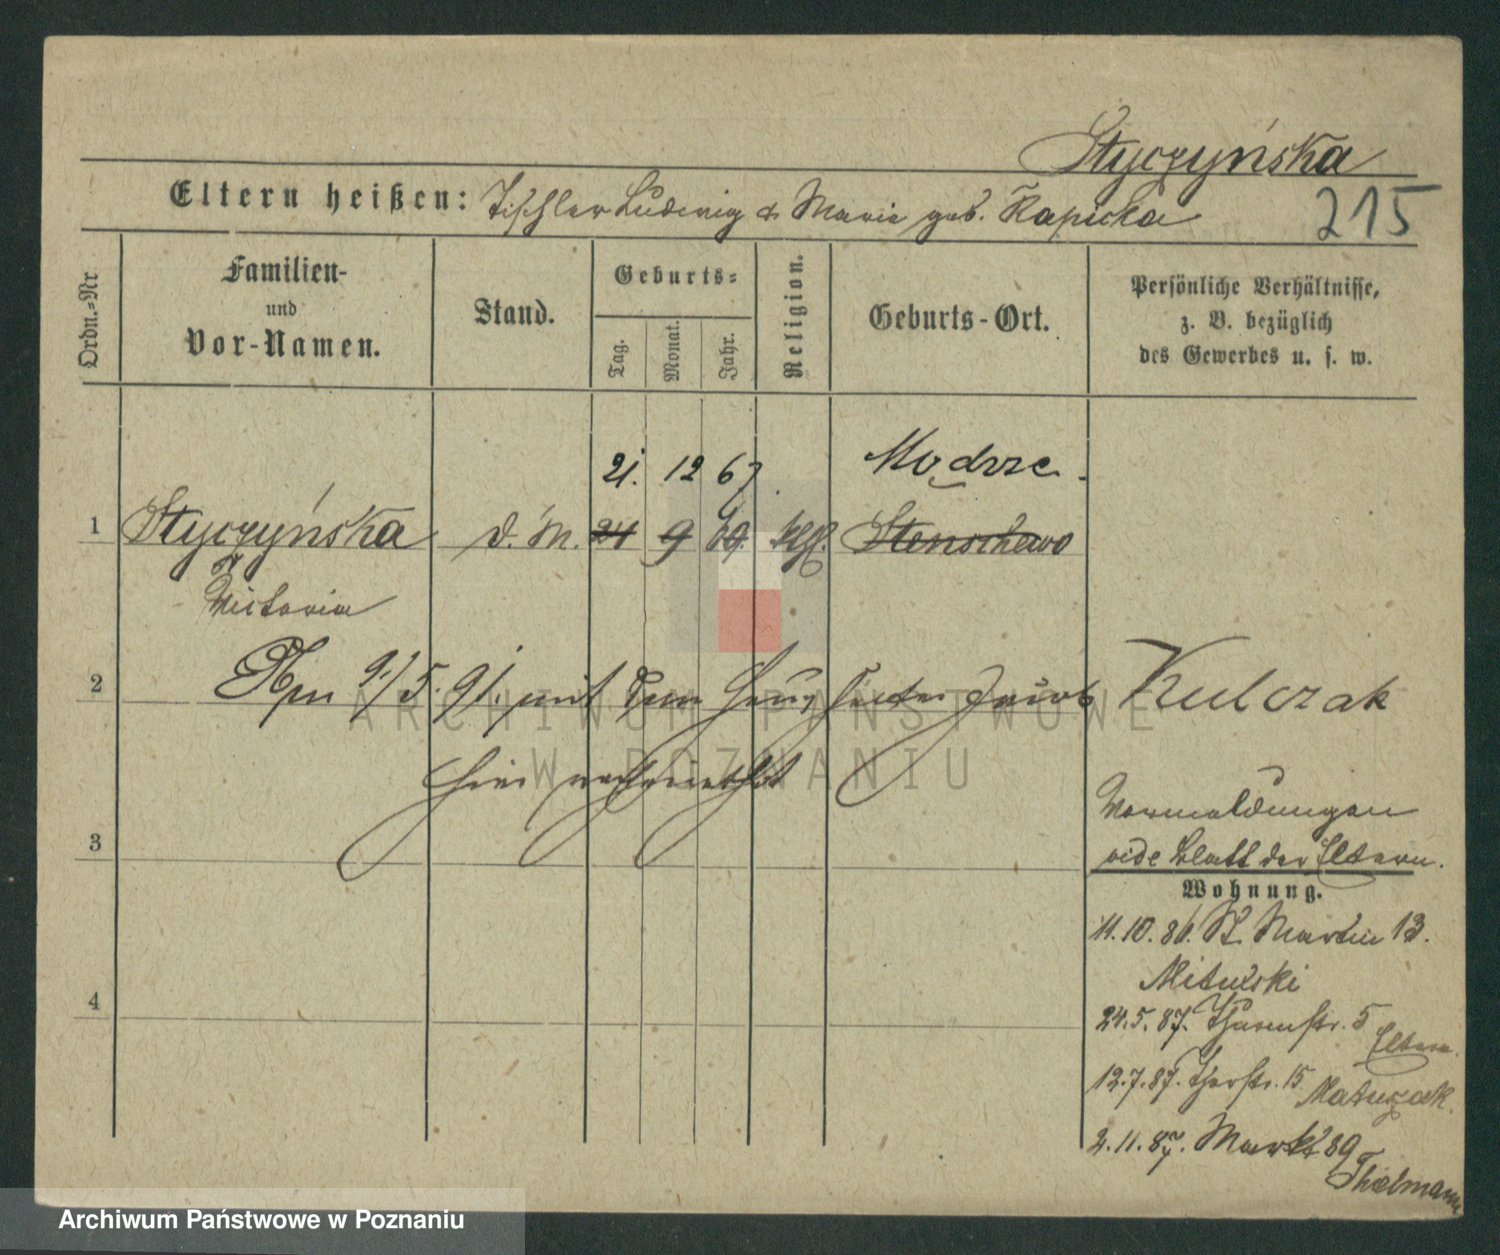 Styczyńska
215
Eltern heißen: Tischler Ludwig & Marie geb. Rapicka
Ordn.-Nr
Familien-
und
Vor-Namen.
Stand.
Geburts-
Tag.
Monat.
Jahr.
Religion.
Geburts-Ort.
Persönliche Verhältnisse,
z. B. bezüglich
des Gewerbes u. s. w.
21. 12 67. Modrze.
1 Styczyńska d. M. 24 9 69. kth. Stenschewo
Victoria
2 Am 9./5. 91. mit dem Haushälter Jacob Kulczak
hier verheirathet
3
4
Vormeldungen
vide Blatt der Eltern.
Wohnung.
11.10.86. St. Martin 13.
Mitulski
24.5.87. Thurmstr. 5
Eltern.
12.7.87. Thorstr. 15
Matuszak.
2.11.87. Markt 89
Thielmann
ARCHIWUM PAŃSTWOWE
W POZNANIU
Archiwum Państwowe w Poznaniu